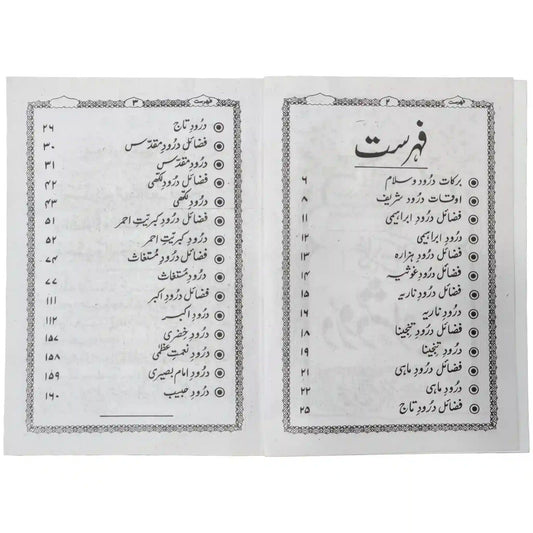 فہرست ۲
فہرست
برکات درُود و سلام ۶
اوقات درُود شریف ۸
فضائل درُودِ ابراہیمی ۱۱
درُودِ ابراہیمی ۱۲
فضائل درُودِ ہزارہ ۱۳
فضائل درُودِ غوثیہ ۱۴
فضائل درُودِ ناریہ ۱۵
درُودِ ناریہ ۱۶
فضائل درُودِ تنجینا ۱۸
درُودِ تنجینا ۱۹
فضائل درُودِ ماہی ۲۱
درُودِ ماہی ۲۲
فضائل درُودِ تاج ۲۵
فہرست ۳
درُودِ تاج ۲۶
فضائل درُودِ مقدّس ۳۰
درُودِ مقدّس ۳۱
فضائل درُودِ لکھی ۴۲
درُودِ لکھی ۴۳
فضائل درُودِ کبریتِ احمر ۵۱
درُودِ کبریتِ احمر ۵۲
فضائل درُودِ مُستغاث ۷۴
درُودِ مُستغاث ۷۷
فضائل درُودِ اکبر ۱۱۱
درُودِ اکبر ۱۱۲
درُودِ خضری ۱۵۷
درُودِ نعمتِ عظمٰی ۱۵۸
درُودِ امام بصیری ۱۵۹
درُودِ حبیب ۱۶۰